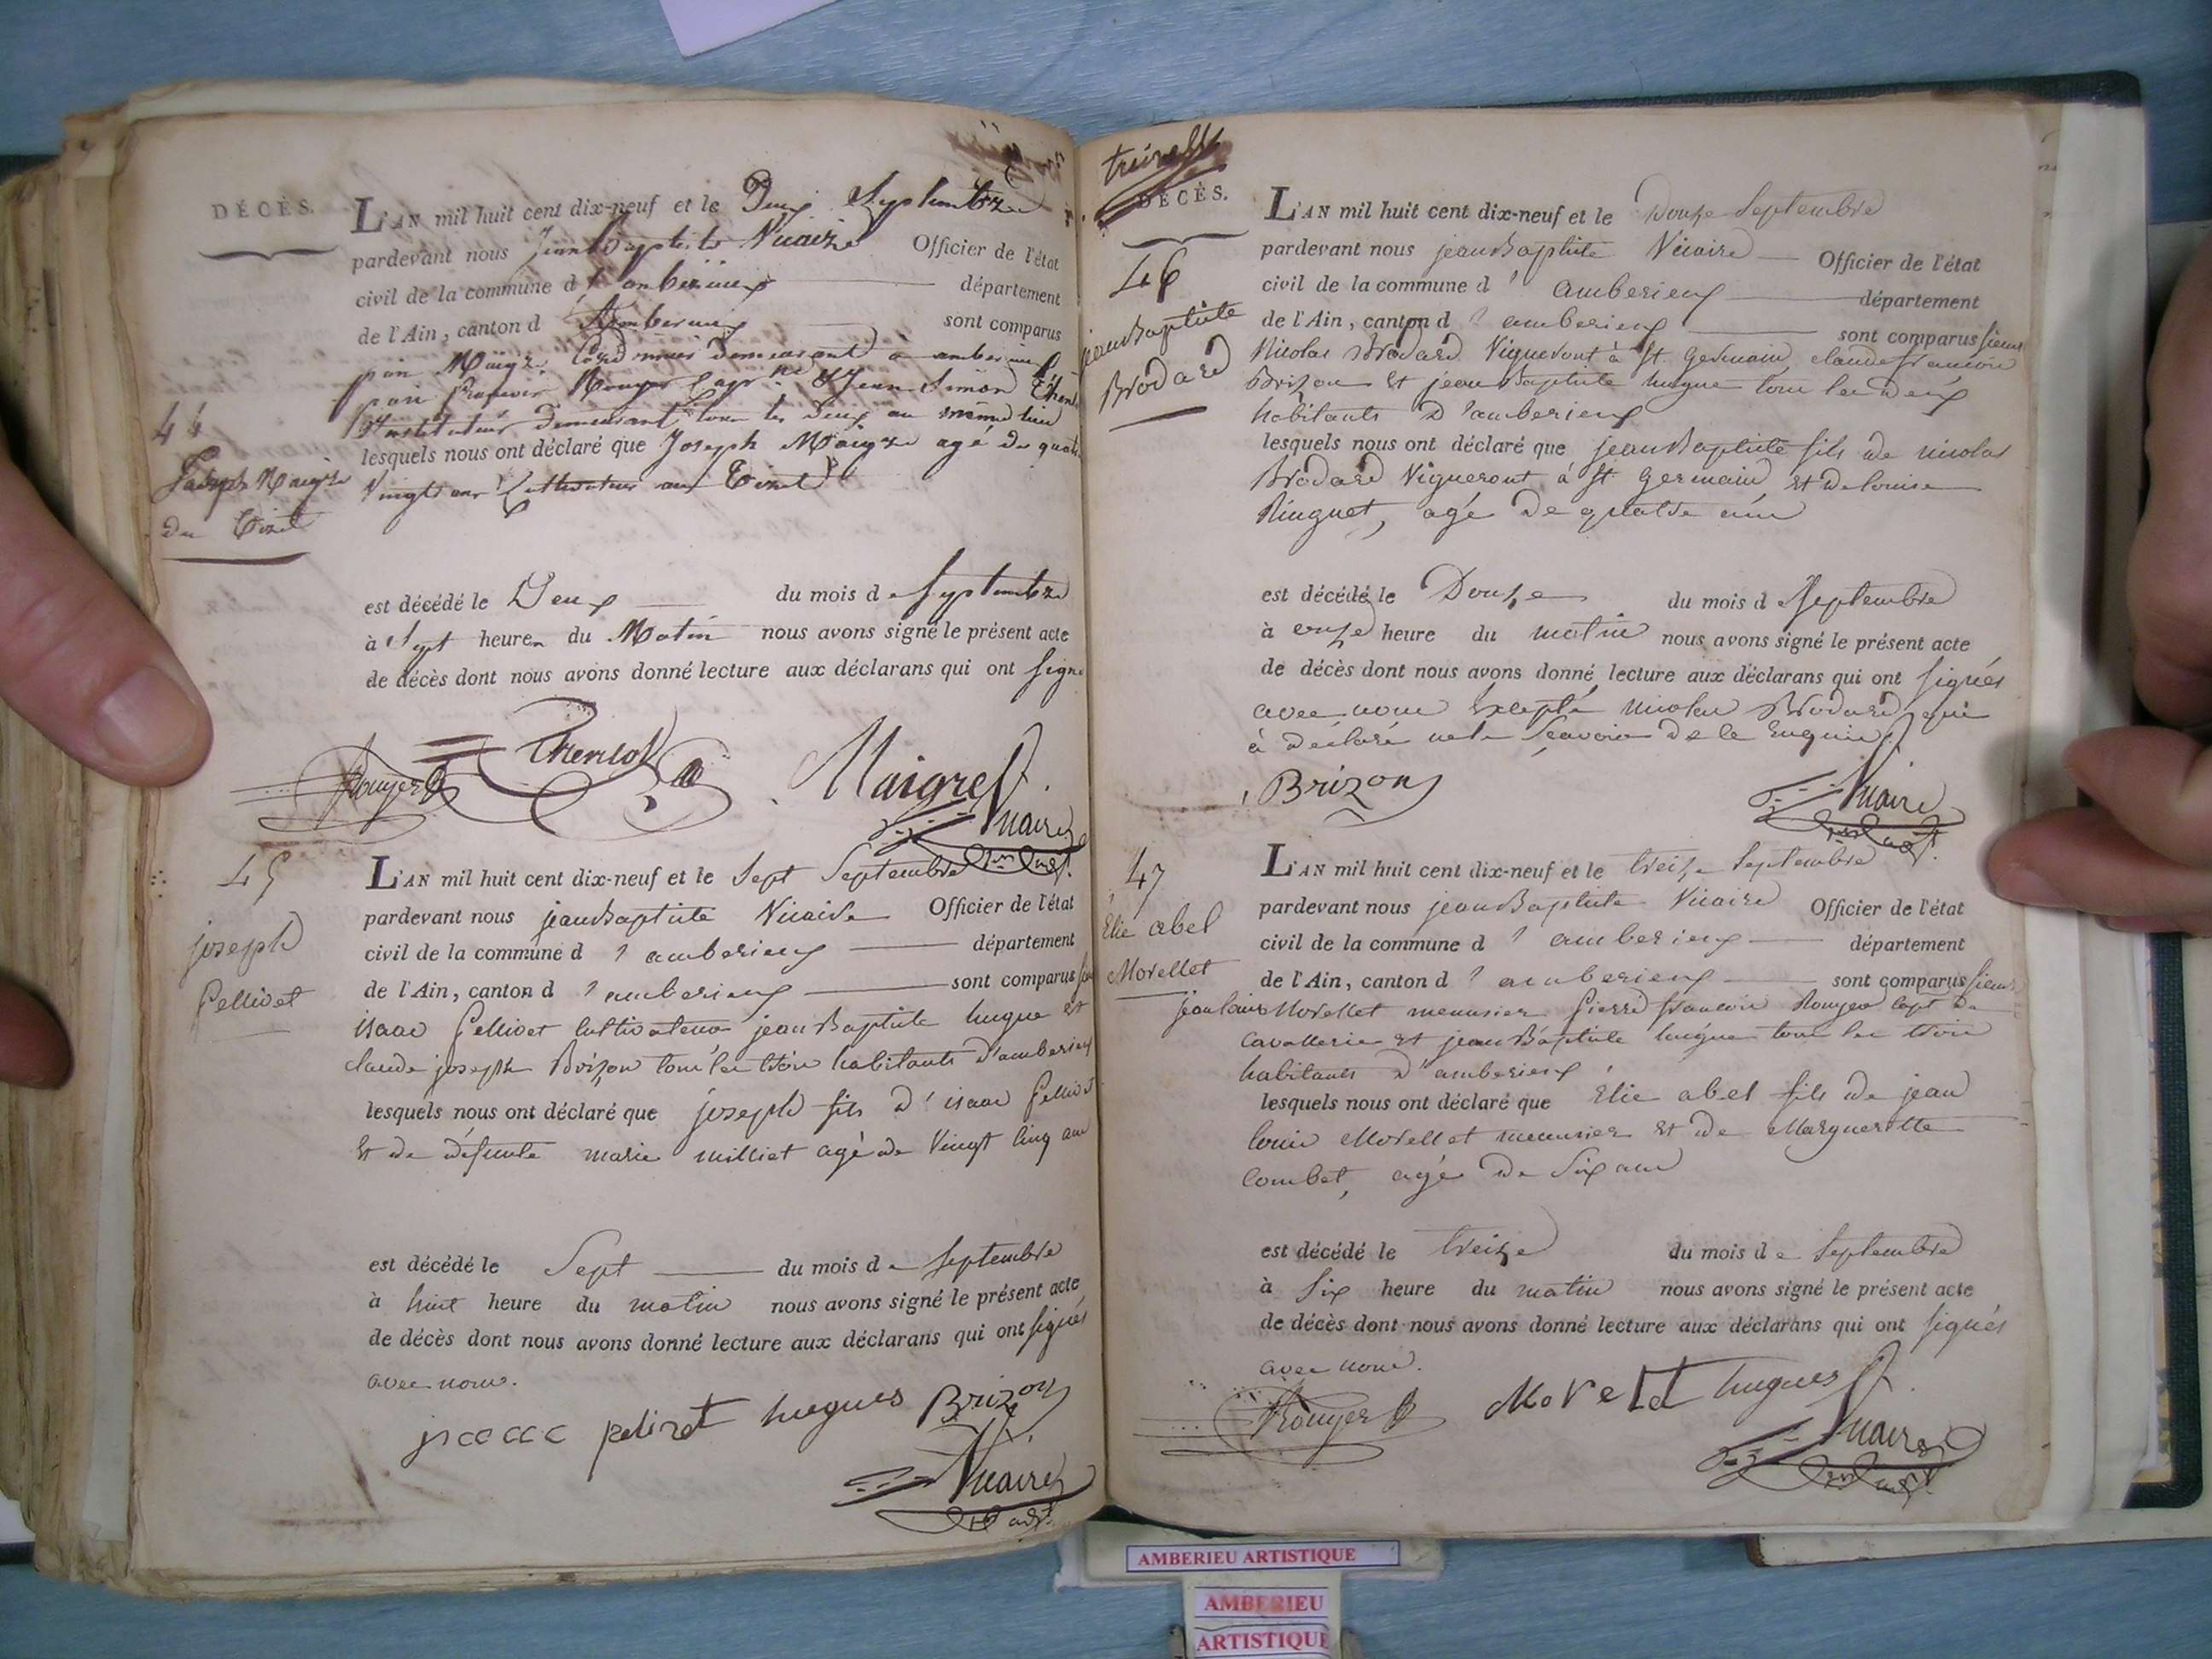 DÉCÈS.
L'AN mil huit cent dix-neuf et le Deux Septembre
pardevant nous Jean Baptiste Vicaire Officier de l'état
civil de la commune d'amberieux département
de l'Ain, canton d'Amberieux sont comparus
Maigre demeurant a amberieux
françois Rouyer Jean Simon
Instituteur demeurant tous les deux au même lieu
44
Joseph Maigre
du Tiret
lesquels nous ont déclaré que Joseph Maigre agé de quatre
Vingts ans Cultivateur au Tiret
est décédé le Deux du mois de Septembre
à Sept heures du Matin nous avons signé le présent acte
de décès dont nous avons donné lecture aux déclarans qui ont signé
Rouyer Maigre
Vicaire
45
joseph
Pellivet
L'AN mil huit cent dix-neuf et le Sept Septembre
pardevant nous jean Baptiste Vicaire Officier de l'état
civil de la commune d'amberieux département
de l'Ain, canton d'amberieux sont comparus
isaac Pellivet Cultivateur jean Baptiste hugue et
claude joseph Brizon tous les trois habitants d'amberieux
lesquels nous ont déclaré que joseph fils d'isaac Pellivet
et de défunte marie milliet agé de Vingt Cinq ans
est décédé le Sept du mois de Septembre
à huit heure du matin nous avons signé le présent acte
de décès dont nous avons donné lecture aux déclarans qui ont signés
avec nous.
hugues Brizon
Vicaire
DÉCÈS.
46
jean Baptiste
Brodard
L'AN mil huit cent dix-neuf et le Douze Septembre
pardevant nous jean Baptiste Vicaire Officier de l'état
civil de la commune d'amberieux département
de l'Ain, canton d'amberieux sont comparus sieurs
Nicolas Brodard Vigneront à St. Germain, claude francois
Brizon et jean Baptiste hugue tous les deux
habitants d'amberieux
lesquels nous ont déclaré que jean Baptiste fils de nicolas
Brodard Vigneront à St. Germain et de louise
agé de quatre ans
est décédé le Douze du mois de Septembre
à onze heure du matin nous avons signé le présent acte
de décès dont nous avons donné lecture aux déclarans qui ont signés
avec nous excepté nicolas Brodard qui
à déclaré ne le Sçavoir de ce enquis
Brizon
Vicaire
47
Elie abel
Morellet
L'AN mil huit cent dix-neuf et le treize Septembre
pardevant nous jean Baptiste Vicaire Officier de l'état
civil de la commune d'amberieux département
de l'Ain, canton d'amberieux sont comparus sieurs
jean louis Morellet menuisier Pierre francois Rouyer capt de
Cavallerie et jean Baptiste hugue tous les trois
habitants d'amberieux
lesquels nous ont déclaré que Elie abel fils de jean
louis Morellet menuisier et de Margueritte
Combet, agé de Six ans
est décédé le treize du mois de Septembre
à Six heure du matin nous avons signé le présent acte
de décès dont nous avons donné lecture aux déclarans qui ont signés
avec nous.
Rouyer hugues
Vicaire
AMBERIEU ARTISTIQUE
AMBERIEU
ARTISTIQUE